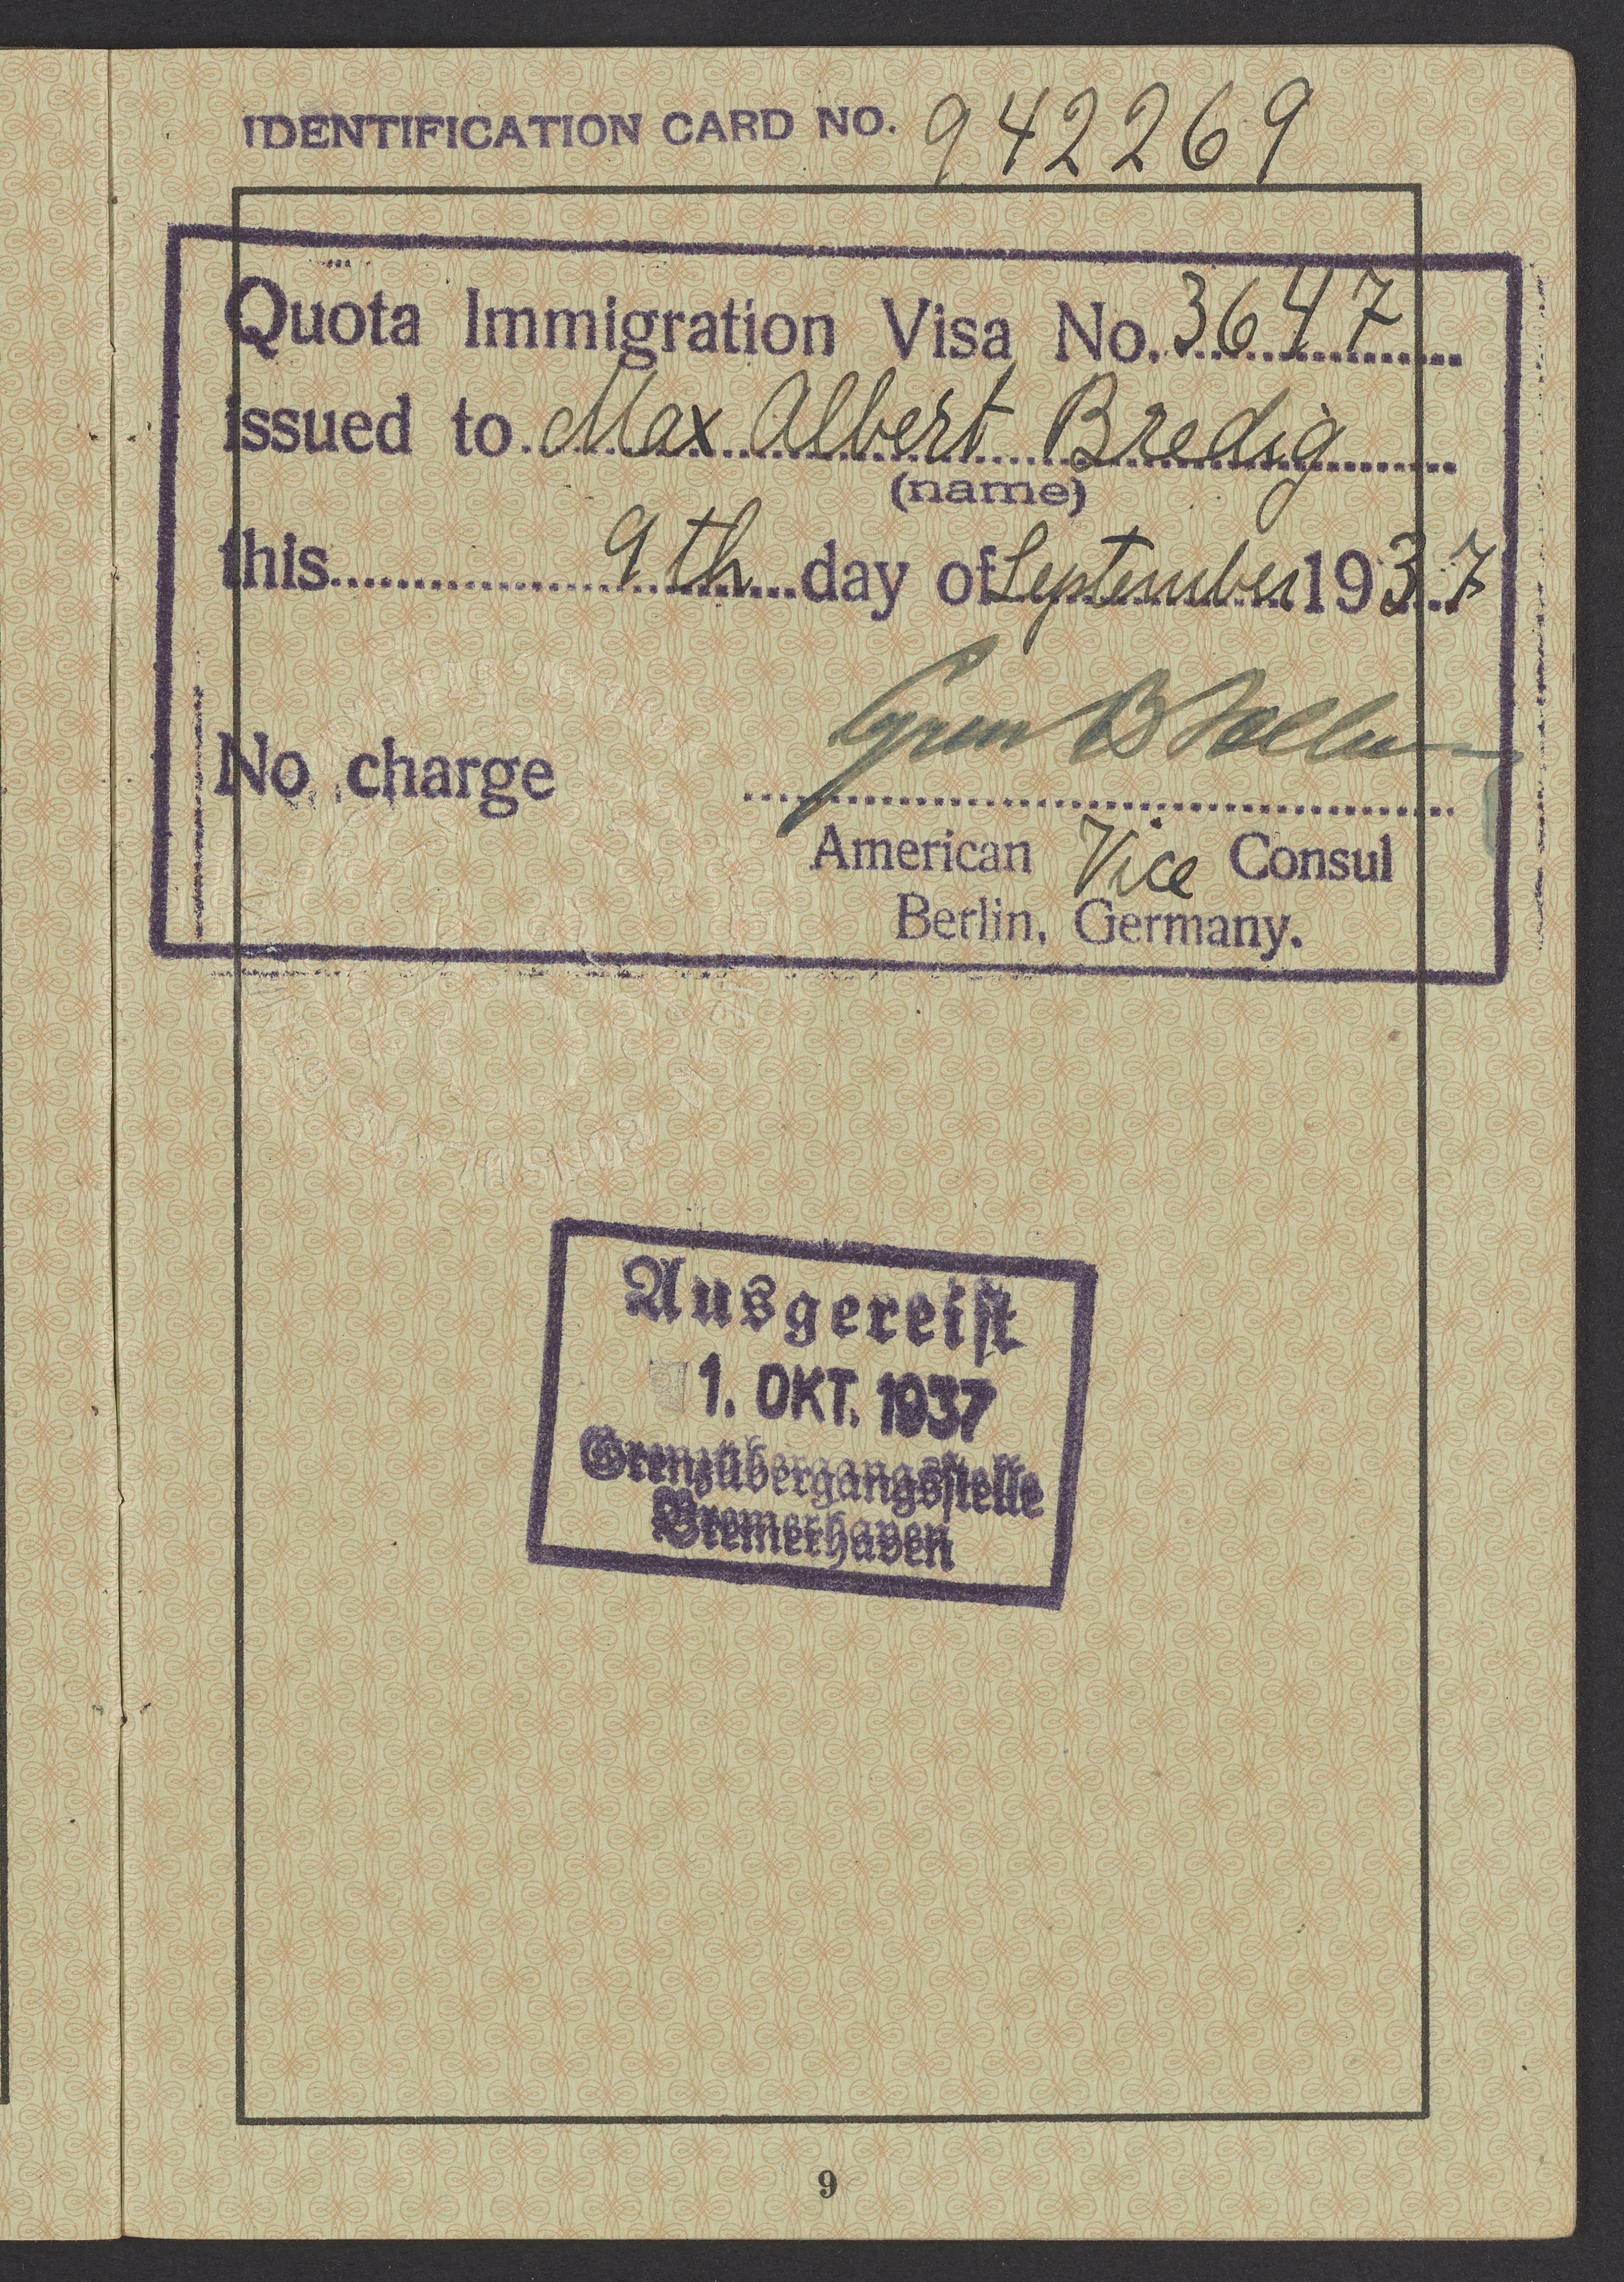 IDENTIFICATION CARD NO. 942269
Quota Immigration Visa No. 3647
issued to Max Albert Bredig
(name)
this 9th day of September 1937
No charge
American Vice Consul
Berlin, Germany.
Ausgereist
1. OKT. 1937
Grenzübergangsstelle
Bremerhaven
9